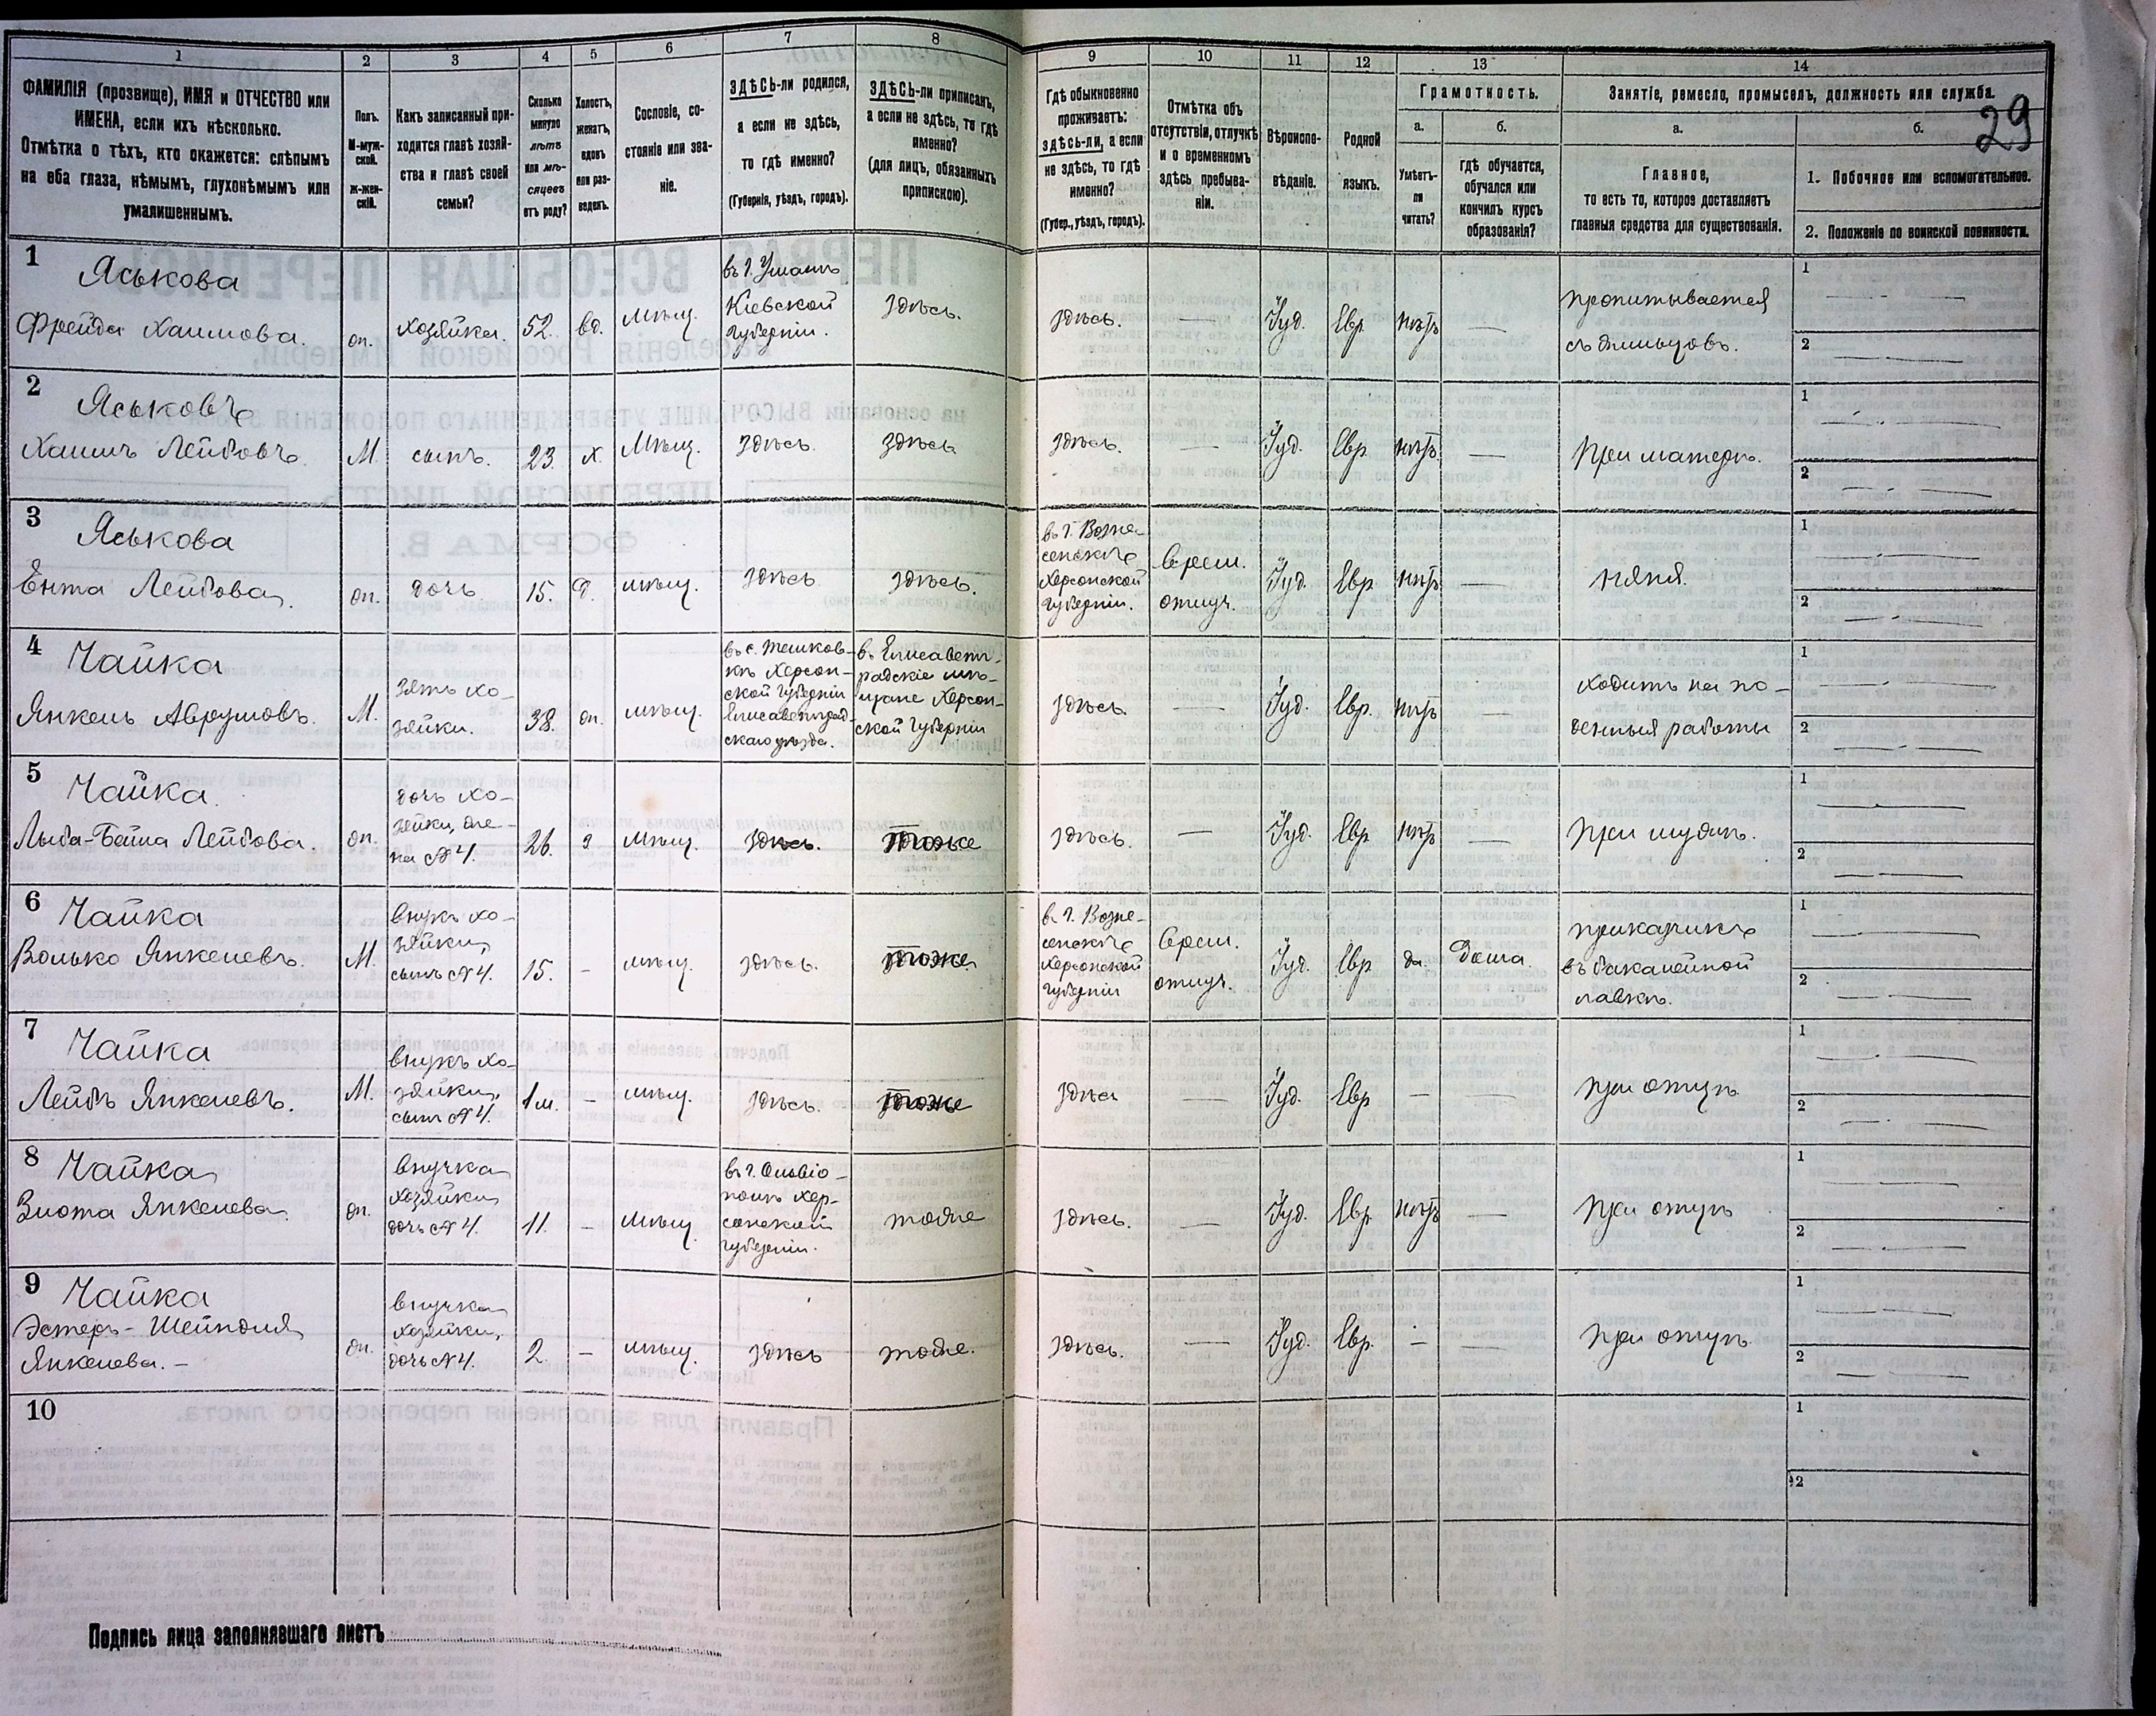 1 2 3 4 5 6 7 8 9 10 11 12 13 14
29
ФАМИЛІЯ (прозвище), ИМЯ и ОТЧЕСТВО или
ИМЕНА, если ихъ нѣсколько.
Отмѣтка о тѣхъ, кто окажется: слѣпымъ
на оба глаза, нѣмымъ, глухонѣмымъ или
умалишеннымъ.
Полъ.
М-муж-
ской.
Ж-жен-
скій.
Какъ записанный при-
ходится главѣ хозяй-
ства и главѣ своей
семьи?
Сколько
минуло
лѣтъ
или мѣ-
сяцевъ
отъ роду?
Холостъ,
женатъ,
вдовъ
или раз-
веденъ.
Сословіе, со-
стояніе или зва-
ніе.
ЗДѢСЬ-ли родился,
а если не здѣсь,
то гдѣ именно?
(Губернія, уѣздъ, городъ).
ЗДѢСЬ-ли приписанъ,
а если не здѣсь, то гдѣ
именно?
(для лицъ, обязанныхъ
припискою).
Гдѣ обыкновенно
проживаетъ:
здѣсь-ли, а если
не здѣсь, то гдѣ
именно?
(Губер., уѣздъ, городъ).
Отмѣтка объ
отсутствіи, отлучкѣ
и о временномъ
здѣсь пребыва-
ніи.
Вѣроиспо-
вѣданіе.
Родной
языкъ.
Грамотность.
а.
Умѣетъ-
ли
читать?
б.
гдѣ обучается,
обучался или
кончилъ курсъ
образованія?
Занятіе, ремесло, промыселъ, должность или служба.
а.
Главное,
то есть то, которое доставляетъ
главныя средства для существованія.
б.
1. Побочное или вспомогательное.
2. Положеніе по воинской повинности.
1
Яськова
Фрейда Хаимова.
жп.
хозяйка.
52.
вд.
мѣщ.
въ г. Умань
Кіевской
губерніи.
здѣсь.
здѣсь.
—
Іуд.
Евр.
нѣтъ
—
пропитывается
съ жильцовъ.
1 — . —
2 — . —
2
Яськовъ
Хаимъ Лейбовъ.
М.
сынъ.
23.
х.
Мѣщ.
здѣсь.
здѣсь
здѣсь.
—
Іуд.
Евр.
нѣтъ
—
при матери.
1 — . —
2 — . —
3
Яськова
Ента Лейбова.
жп.
дочь
15.
д.
мѣщ.
здѣсь
здѣсь.
въ г. Возне-
сенскѣ
Херсонской
губерніи.
Врем.
отлуч.
Іуд.
Евр.
нѣтъ
—
няня.
1 — . —
2 — . —
4
Чайка
Янкель Аврумовъ.
М.
зять хо-
зяйки.
38.
жп.
мѣщ.
Херсон-
ской губерніи
Елисаветград-
скаго уѣзда.
въ Елисаветг-
радскіе мѣ-
щане Херсон-
ской губерніи
здѣсь.
—
Іуд.
Евр.
нѣтъ
—
ходитъ на по-
денныя работы
1 — . —
2 — . —
5
Чайка.
Лейбова.
жп.
дочь хо-
зяйки, же-
на № 4.
26.
з
мѣщ.
здѣсь.
тоже
здѣсь.
—
Іуд.
Евр.
нѣтъ
—
при мужѣ.
1 — . —
2 — . —
6
Чайка
Волько Янкелевъ.
М.
внукъ хо-
зяйки,
сынъ № 4.
15.
-
мѣщ.
здѣсь.
тоже
въ г. Возне-
сенскѣ
Херсонской
губерніи
Врем.
отлуч.
Іуд.
Евр
да.
Дома.
прикащикъ
въ бакалейной
лавкѣ.
1 — . —
2 — . —
7
Чайка
Лейбъ Янкелевъ.
М.
внукъ хо-
зяйки,
сынъ № 4.
1 м.
-
мѣщ.
здѣсь.
тоже
здѣсь
—
Іуд.
Евр
—
—
при отцѣ
1 — . —
2 — . —
8
Чайка
Злота Янкелева.
жп.
внучка
хозяйки
дочь № 4.
11.
-
мѣщ.
въ г. Ольвіо-
полѣ Хер-
сонской
губерніи.
тоже
здѣсь.
—
Іуд.
Евр.
нѣтъ
—
при отцѣ
1 — . —
2 — . —
9
Чайка
Эстеръ-Шейндля
Янкелева. -
жп.
внучка
хозяйки,
дочь № 4.
2.
—
мѣщ.
здѣсь
тоже.
здѣсь.
—
Іуд.
Евр.
—
—
при отцѣ.
1 — . —
2 — . —
10
1
2
Подпись лица заполнявшаго листъ